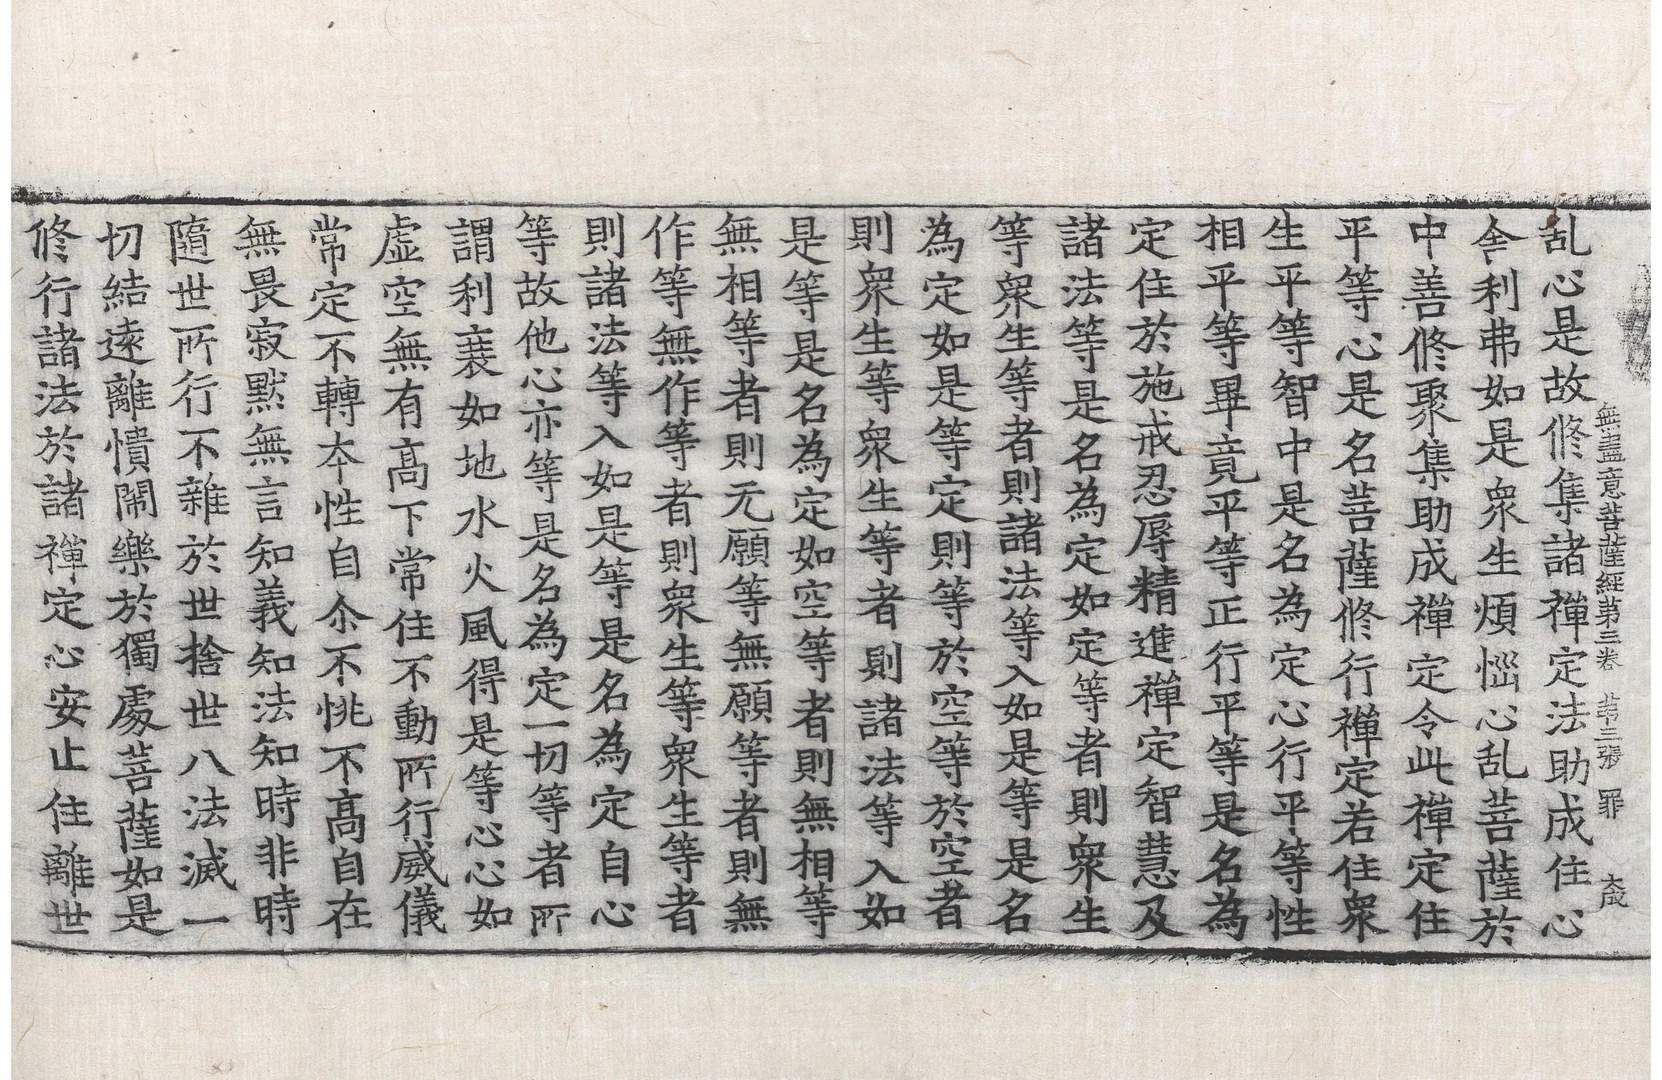 無盡意菩薩經第三卷 第三張 罪 大成
乱心是故修集諸禪定法助成住心
舎利弗如是衆生煩惱心乱菩薩於
中善修聚集助成禪定令此禪定住
平等心是名菩薩修行禪定若住衆
生平等智中是名為定心行平等性
相平等畢竟平等正行平等是名為
定住於施戒忍辱精進禪定智慧及
諸法等是名為定如定等者則衆生
等衆生等者則諸法等入如是等是名
為定如是等定則等於空等於空者
則衆生等衆生等者則諸法等入如
是等是名為定如空等者則無相等
無相等者則无願等無願等者則無
作等無作等者則衆生等衆生等者
則諸法等入如是等是名為定自心
等故他心亦等是名為定一切等者所
謂利衰如地水火風得是等心心如
虚空無有高下常住不動所行威儀
常定不轉本性自尒不恌不高自在
無畏寂默無言知義知法知時非時
隨世所行不雜於世捨世八法滅一
切結遠離憒閙樂於獨處菩薩如是
修行諸法於諸禪定心安止住離世